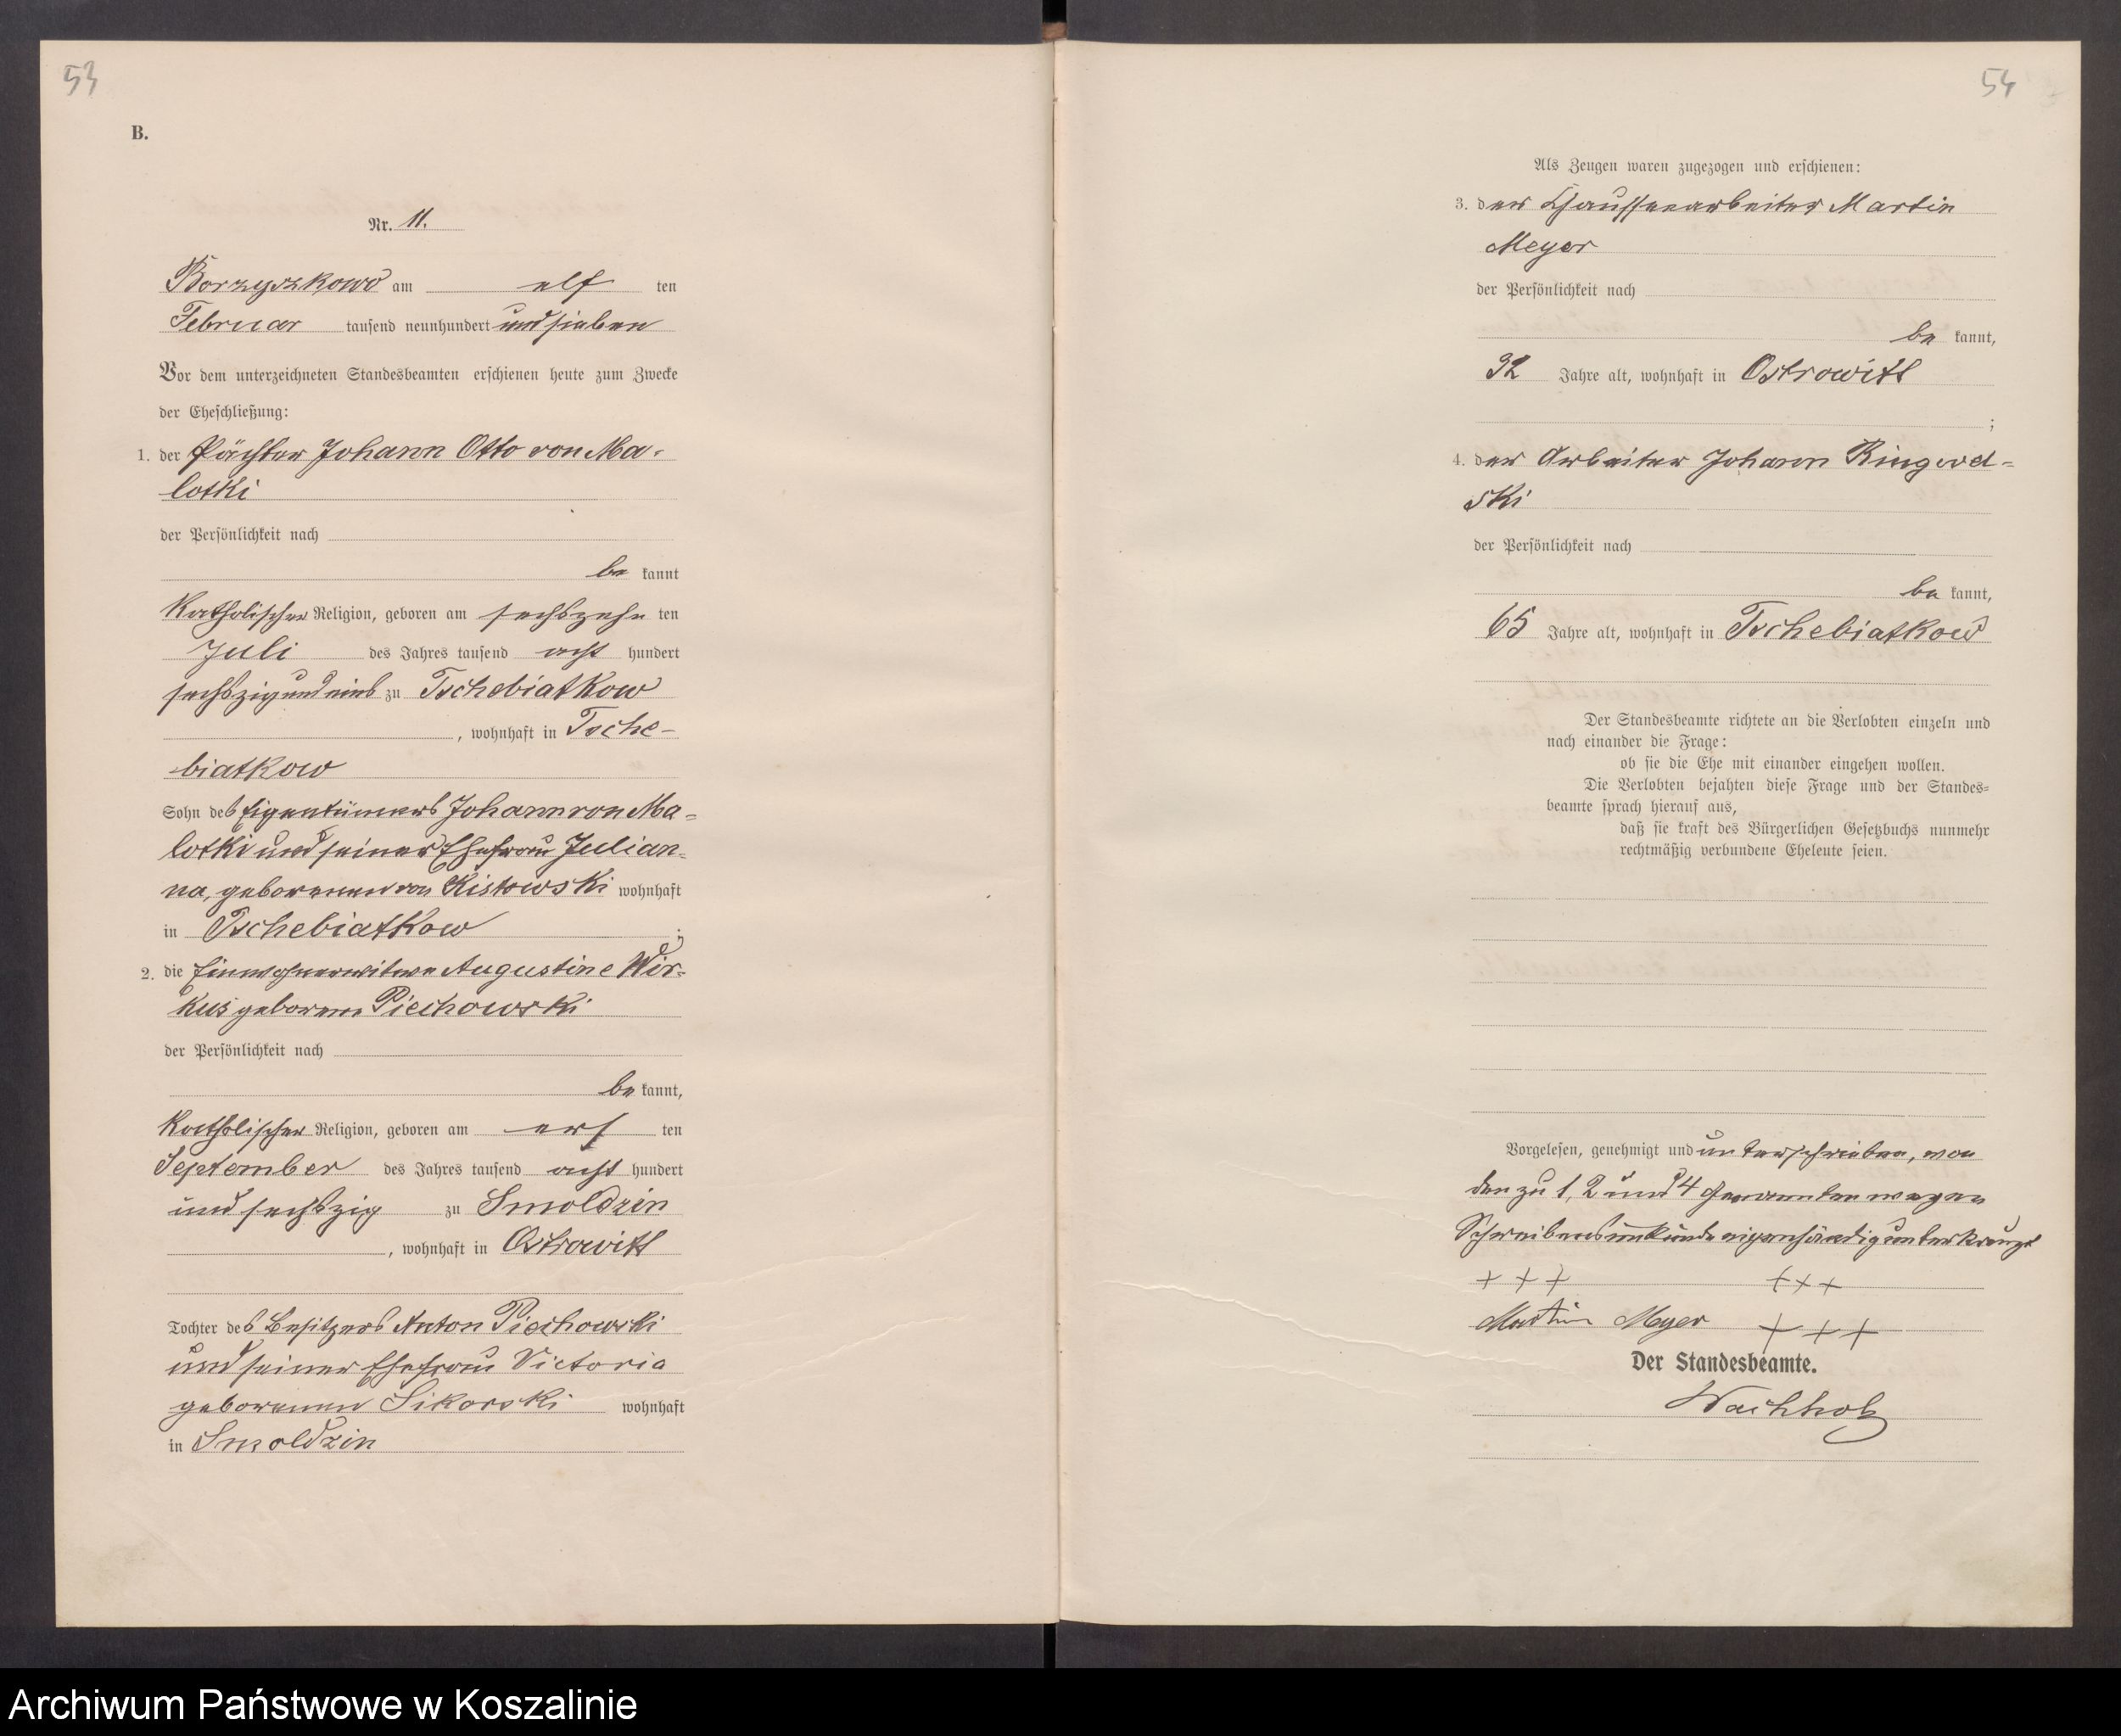 53
B.
Nr. 11.
Borzyszkowo am elf ten
Februar tausend neunhundert und sieben
Vor dem unterzeichneten Standesbeamten erschienen heute zum Zwecke
der Eheschließung:
1. der Pächter Johann Otto von Ma-
lotki
der Persönlichkeit nach
be kannt
Katholischer Religion, geboren am sechszehn ten
Juli des Jahres tausend acht hundert
sechszig und eins zu Tschebiatkow
, wohnhaft in Tsche-
biatkow
Sohn des Eigentümers Johann von Ma-
lotki und seiner Ehefrau Julian-
na, geborenen von Kistowski wohnhaft
in Tschebiatkow ;
2. die Einwohnerwitwe Augustine Wir-
kus geborene Piechowski
der Persönlichkeit nach
be kannt,
Katholischer Religion, geboren am ers ten
September des Jahres tausend acht hundert
und sechszig zu Smoldzin
, wohnhaft in Ostrowitt
Tochter des Besitzers Anton Piechowski
und seiner Ehefrau Victoria
geborenen Sikorski wohnhaft
in Smoldzin
54
Als Zeugen waren zugezogen und erschienen:
3. der Chausseearbeiter Martin
Meyer
der Persönlichkeit nach
be kannt,
32 Jahre alt, wohnhaft in Ostrowitt
;
4. der Arbeiter Johann
ski
der Persönlichkeit nach
be kannt,
65 Jahre alt, wohnhaft in Tschebiatkow
Der Standesbeamte richtete an die Verlobten einzeln und
nach einander die Frage:
ob sie die Ehe mit einander eingehen wollen.
Die Verlobten bejahten diese Frage und der Standes-
beamte sprach hierauf aus,
daß sie kraft des Bürgerlichen Gesetzbuchs nunmehr
rechtmäßig verbundene Eheleute seien.
Vorgelesen, genehmigt und unterschrieben, von
den zu 1, 2 und 4 Genannten wegen
Schreibensunkunde eigenhändig unterkreuzt
+ + + + + +
Martin Meyer + + +
Der Standesbeamte.
Wachholz
Archiwum Państwowe w Koszalinie